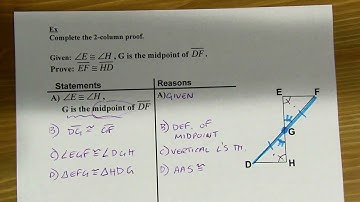 Ex
Complete the 2-column proof.
Given: ∠E ≅ ∠H , G is the midpoint of DF .
Prove: EF ≅ HD
Statements
Reasons
A) ∠E ≅ ∠H ,
G is the midpoint of DF
A) GIVEN
B) DG ≅ GF
B) DEF. OF
MIDPOINT
C) ∠EGF ≅ ∠DGH
C) VERTICAL ∠'S TH.
D) △EFG ≅ △HDG
D) AAS ≅
E
F
G
D
H